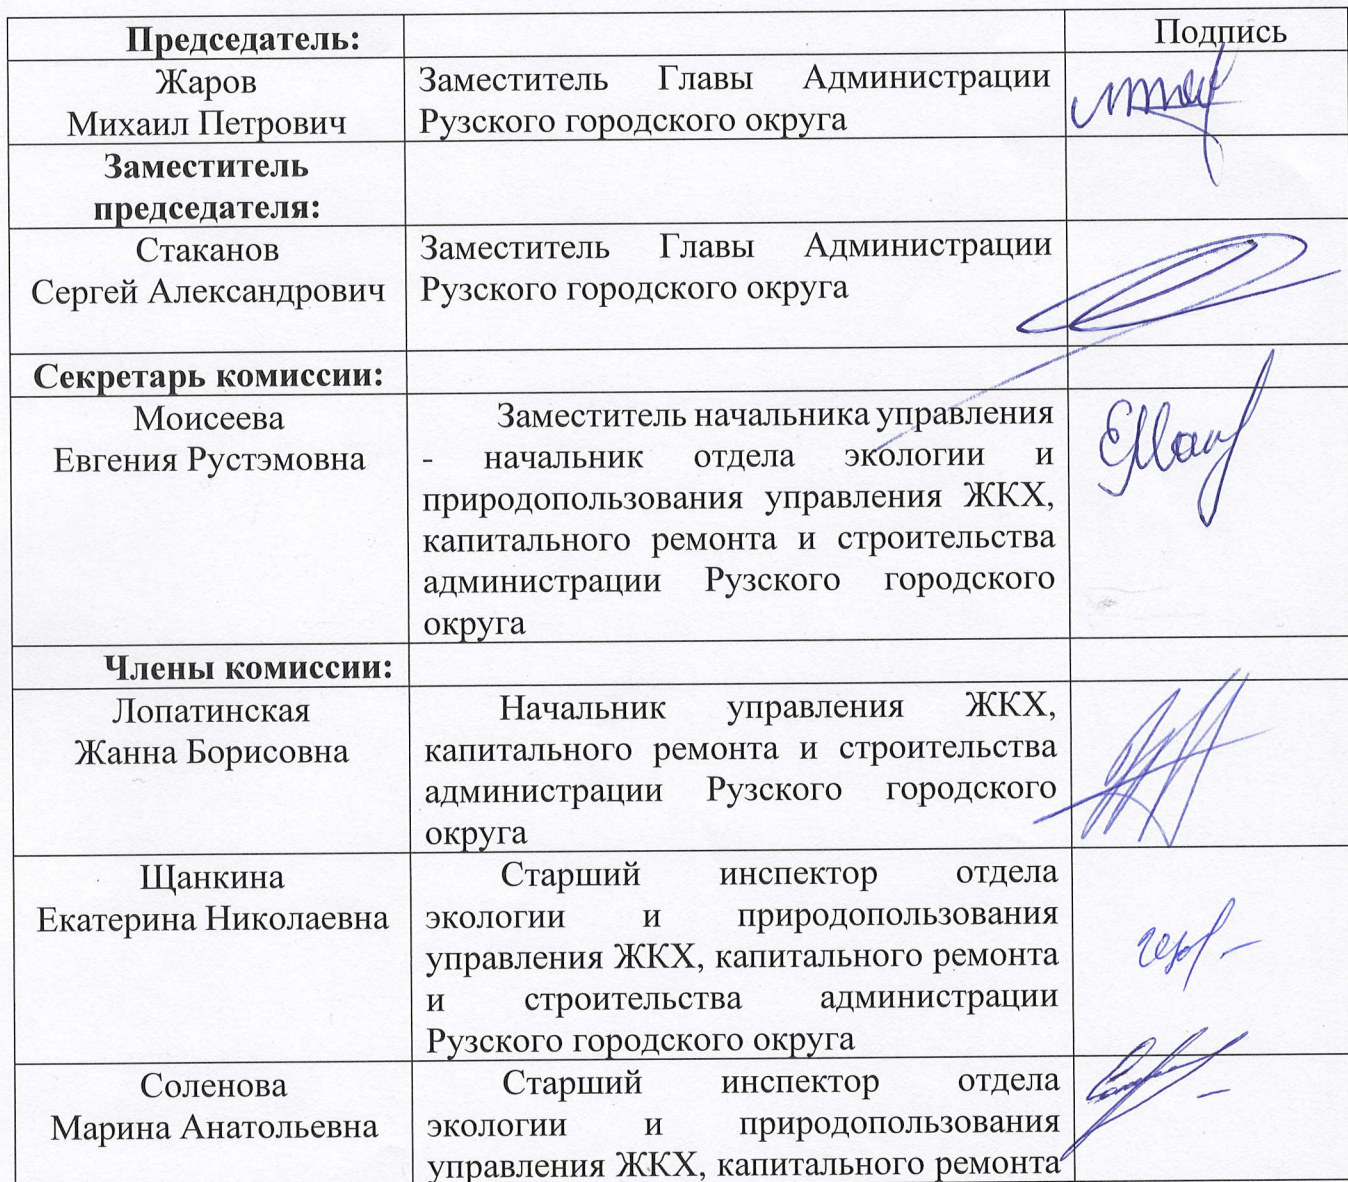 Председатель:
Подпись
Жаров
Михаил Петрович
Заместитель Главы Администрации
Рузского городского округа
Заместитель
председателя:
Стаканов
Сергей Александрович
Заместитель Главы Администрации
Рузского городского округа
Секретарь комиссии:
Моисеева
Евгения Рустэмовна
Заместитель начальника управления
- начальник отдела экологии и
природопользования управления ЖКХ,
капитального ремонта и строительства
администрации Рузского городского
округа
Члены комиссии:
Лопатинская
Жанна Борисовна
Начальник управления ЖКХ,
капитального ремонта и строительства
администрации Рузского городского
округа
Щанкина
Екатерина Николаевна
Старший инспектор отдела
экологии и природопользования
управления ЖКХ, капитального ремонта
и строительства администрации
Рузского городского округа
Соленова
Марина Анатольевна
Старший инспектор отдела
экологии и природопользования
управления ЖКХ, капитального ремонта